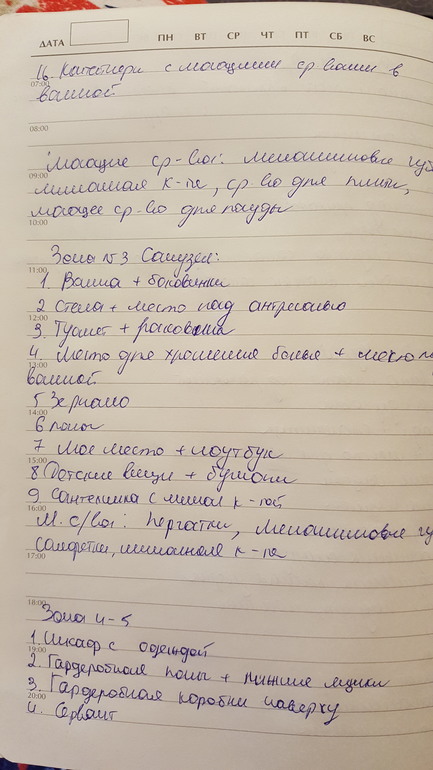 ДАТА ПН ВТ СР ЧТ ПТ СБ ВС
16. Контейнеры с моющими ср-вами в
07:00
ванной
08:00
Моющие ср-ва: меламиновые губ
09:00
лимонная к-та, ср-во для плиты,
моющее ср-во для посуды
10:00
Зона №3 Санузел:
11:00
1. Ванна + боковинки
2 Стена + место над антресолью
12:00
3. Туалет + раковина
4. Место для хранения белья +
13:00
ванной
5 Зеркало
14:00
6 полы
7 Мое место + ноутбук
15:00
8 Детские вещи + бумаги
9. Сантехника с лимон к-той
16:00
М. с/ва: перчатки, меламиновые гу
салфетки, лимонная к-та
17:00
18:00
Зона 4-5
1. Шкаф с одеждой
19:00
2. Гардеробная полы + нижние ящики
3. Гардеробная коробки наверху
20:00
4. Сервант